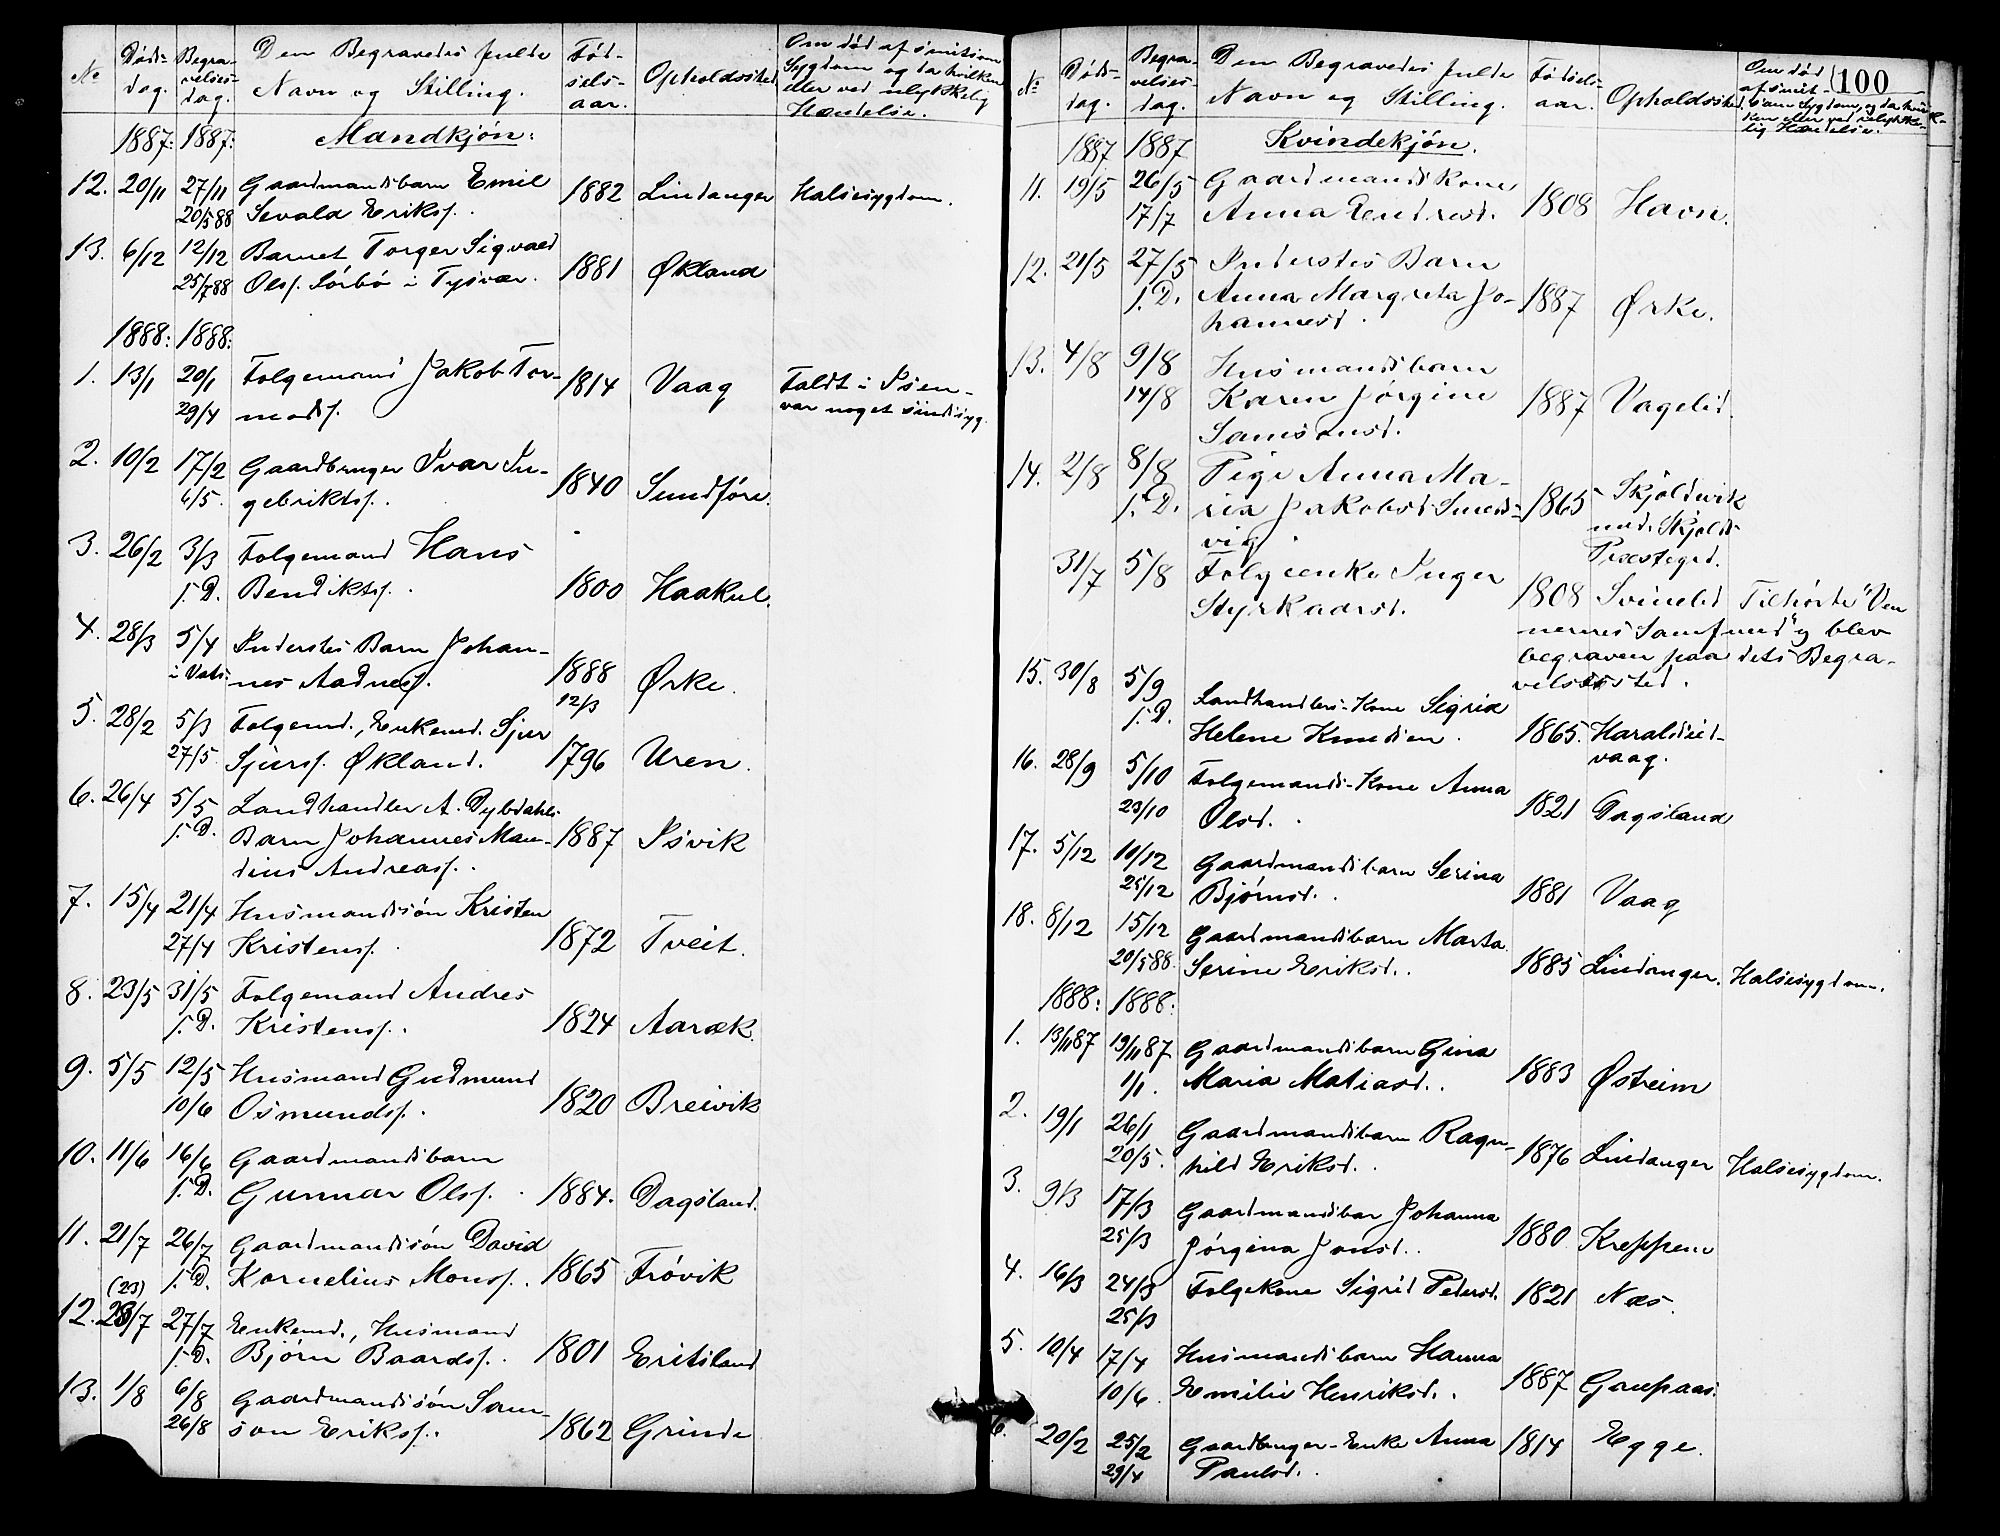 No
Døds-
dag.
Begra-
velses-
dag.
Den Begravedes fulde
Navn og Stilling.
Fød-
sels-
aar.
Opholdssted
Om død af smitsom
Sygdom og da hvilken
eller ved ulykkelig
Hændelse.
1887: 1887: Mandkjøn:
12. 20/11 27/11 Gaardmandsbarn Emil 1882 Lindanger Halsesygdom.
20/5 88 Sevald Eriks.
13. 6/12 12/12 Barnet Torger Sigvald 1881 Økland
25/7 88 Olss. Sørbø i Tysvær.
1888: 1888:
1. 13/1 20/1 Folgemand Jakob Tor- 1814 Vaag Faldt i Isen-
29/4 mods. var noget sindsyg.
2. 10/2 17/2 Gaardbruger Ivar In- 1840 Sundføre.
6/5. gebrikts.
3. 26/2 3/3 Folgemand Hans
s. D. Bendikts. 1800 Haakul.
4. 28/3 5/4 Inderstes Barn Johan-
i Vats. nes Aadness. 1888 Ørke.
12/3
5. 28/2 5/3 Folgemd., Enkemd. Sjur
27/5. Sjurss. Økland. 1796 Uren.
6. 26/4 5/5 Landhandler A. Dybdahls
s. D. Barn Johannes Man- 1887 Isvik
dius Andreass.
7. 15/4 21/4 Husmandssøn Kristen
27/4 Kristens. 1872 Tveit.
8. 23/5 31/5 Folgemand Andres
s. D. Kristens. 1824 Aaræk.
9. 5/5 12/5 Husmand Gudmund
10/6 Osmunds. 1820 Breivik
10. 11/6 16/6 Gaardmandsbarn
s. D. Gunnar Olss. 1884. Dagsland.
11. 21/7 26/7 Gaardmandssøn David
s. D. Kornelius Monss. 1865 Frøvik
(23)
12. 27/7 Enkemd., Husmand
s. D. Bjørn Baards. 1801 Eritsland
13. 1/8 6/8 Gaardmandssøn Sam-
26/8 son Eriks. 1862 Grinde
100
No
Døds-
dag.
Begra-
velses-
dag.
Den Begravedes fulde
Navn og Stilling.
Fødsels-
aar.
Opholdssted.
Om død
af smit-
som Sygdom, og da hvil-
ken eller ved ulykke-
lig Hændelse.
1887 1887 Kvindekjøn.
11. 19/5 26/5 Gaardmandskone
17/7 Anna Endresd. 1808 Havn.
12. 21/5 27/5 Inderstes Barn
s. D. Anna Margreta Jo- 1887 Ørke.
hannesd.
13. 4/8 9/8 Husmandsbarn
14/8 Karen Jørgine 1887 Vagelid.
Samsonsd.
14. 2/8 8/8 Pige Anna Ma- 1865 Skjoldevik
s. D. ria Jakobsd. Smeds- und. Skjolds
vig. Præstegd.
31/7 5/8 Folgeenke Inger
Styrkaarsd. 1808 Svinelid Tilhørte "Ven
nernes Samfund" og blev
begraven paa dets Begra-
velsessted.
15. 30/8 5/9 Landhandlers-Kone Sigrid
s. D. Helene Knudsen. 1865. Haraldseid-
vaag.
16. 28/9 5/10 Folgemands-Kone Anna
23/10 Olsd. 1821 Dagsland
17. 5/12 10/12 Gaardmandsbarn Serina
25/12 Bjørnsd. 1881 Vaag
18. 8/12 15/12 Gaardmandsbarn Marta
20/5 88. Serine Eriksd. 1885 Lindanger. Halsesygdom.
1888: 1888:
1. 13/11 87 19/11 87. Gaardmandsbarn Gina
1/1. Maria Matiasd. 1883 Østreim
2. 19/1 26/1 Gaardmandsbarn Ragn-
20/5. hild Eriksd. 1876 Lindanger Halsesygdom.
3. 9/3 17/3 Gaardmandsbar Johanna
25/3 Jørgina Jonsd. 1880 Kreppene
4. 16/3 24/3 Folgekone Sigrid Pedersd. 1821 Næs.
25/3
5. 10/4 17/4 Husmandsbarn Hanna
10/6. Emilie Henriksd. 1887 Gaupaas.
6. 20/2 25/2 Gaardbruger-Enke Anna 1814 Egge.
29/4 Paulsd.